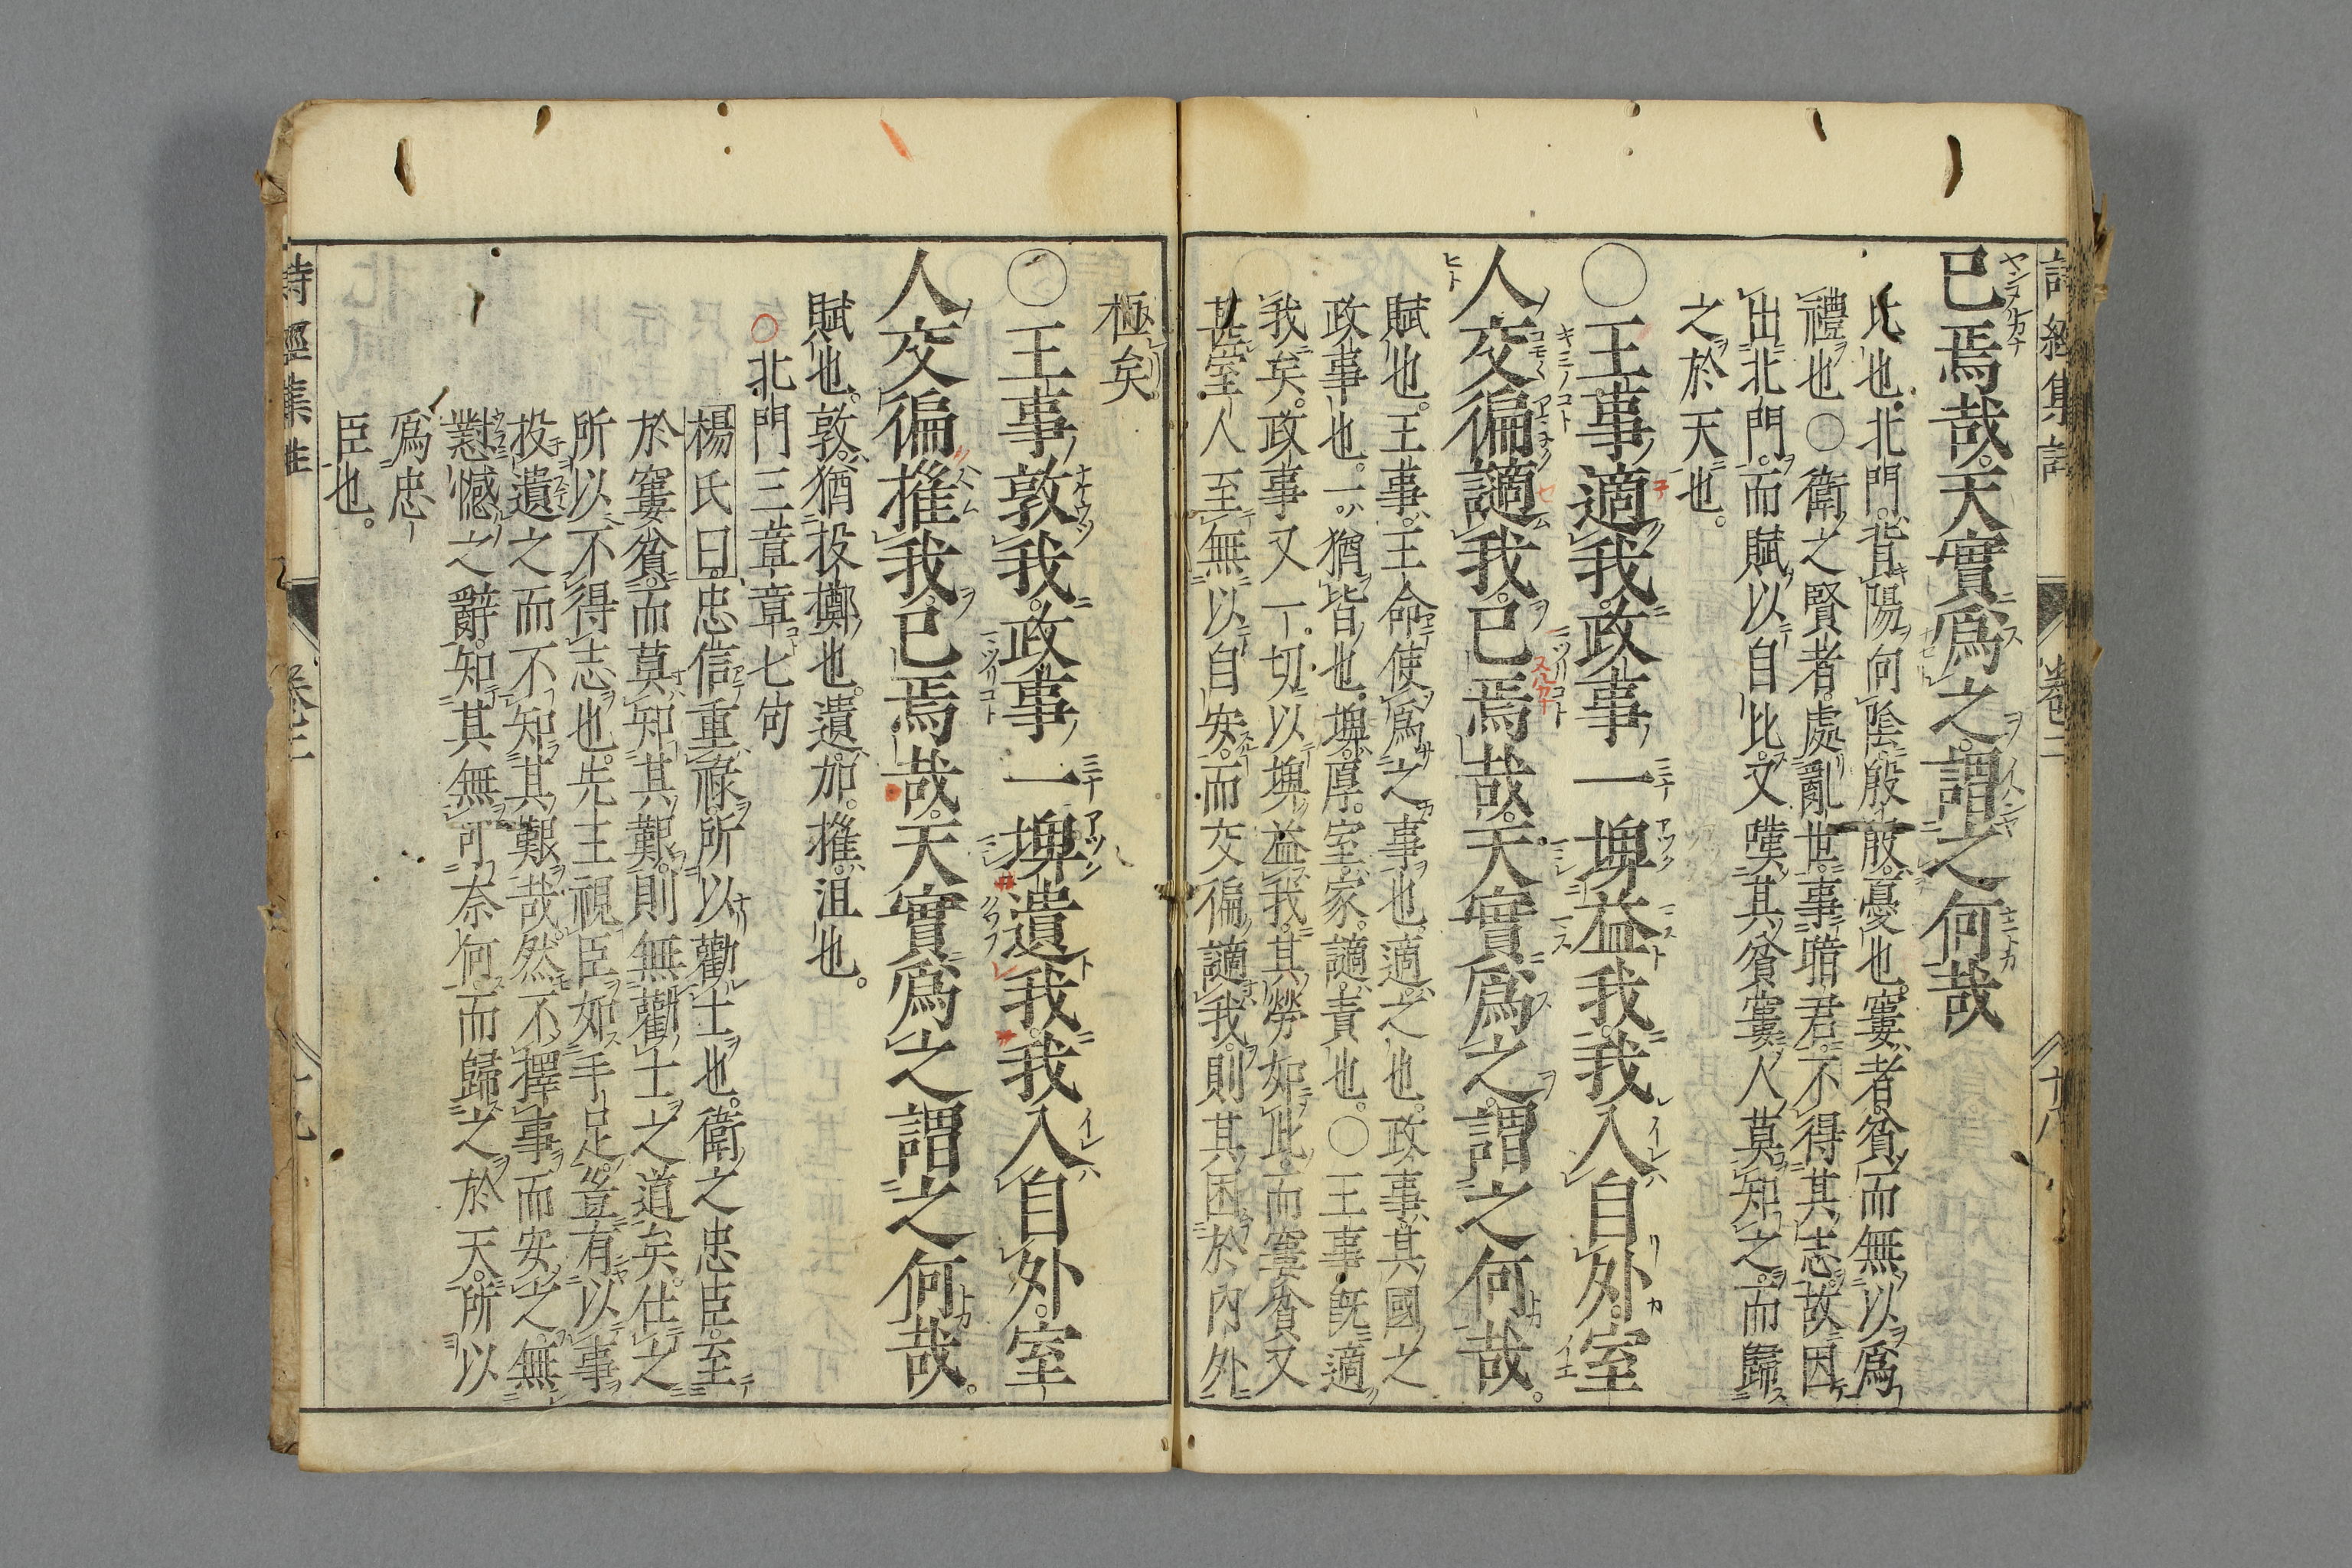 詩經集註 卷二 十八
已焉哉。天實爲之。謂之何哉
比也。北門。背陽向陰。殷殷。憂也。窶者。貧而無以爲
禮也○衛之賢者。處亂世。事暗君。不得其志。故因
出北門。而賦以自比。又嘆其貧窶。人莫知之。而歸
之於天也。
○王事適我。政事一埤益我。我入自外。室
人交徧讁我。已焉哉。天實爲之。謂之何哉。
賦也。王事。王命使爲之事也。適。之也。政事。其國之
政事也。一。猶皆也。埤。厚。室。家。讁。責也。○王事旣適
我矣。政事又一切以埤益我。其勞如此。而窶貧又
甚。室人至無以自安。而交徧讁我。則其困於內外
極矣。
○王事敦我。政事一埤遺我。我入自外。室
人交徧摧我。已焉哉。天實爲之謂之何哉。
賦也。敦。猶投擲也。遺。加。摧。沮也。
北門三章章七句
楊氏曰。忠信重祿。所以勸士也。衛之忠臣。至
於窶貧。而莫知其艱。則無勸士之道矣。仕之
所以不得志也。先王視臣如手足。豈有以事
投遺之而不知其艱哉。然不擇事而安之。無
懟憾之辭。知其無可奈何。而歸之於天。所以
爲忠
臣也。
詩經集註 卷二 十九